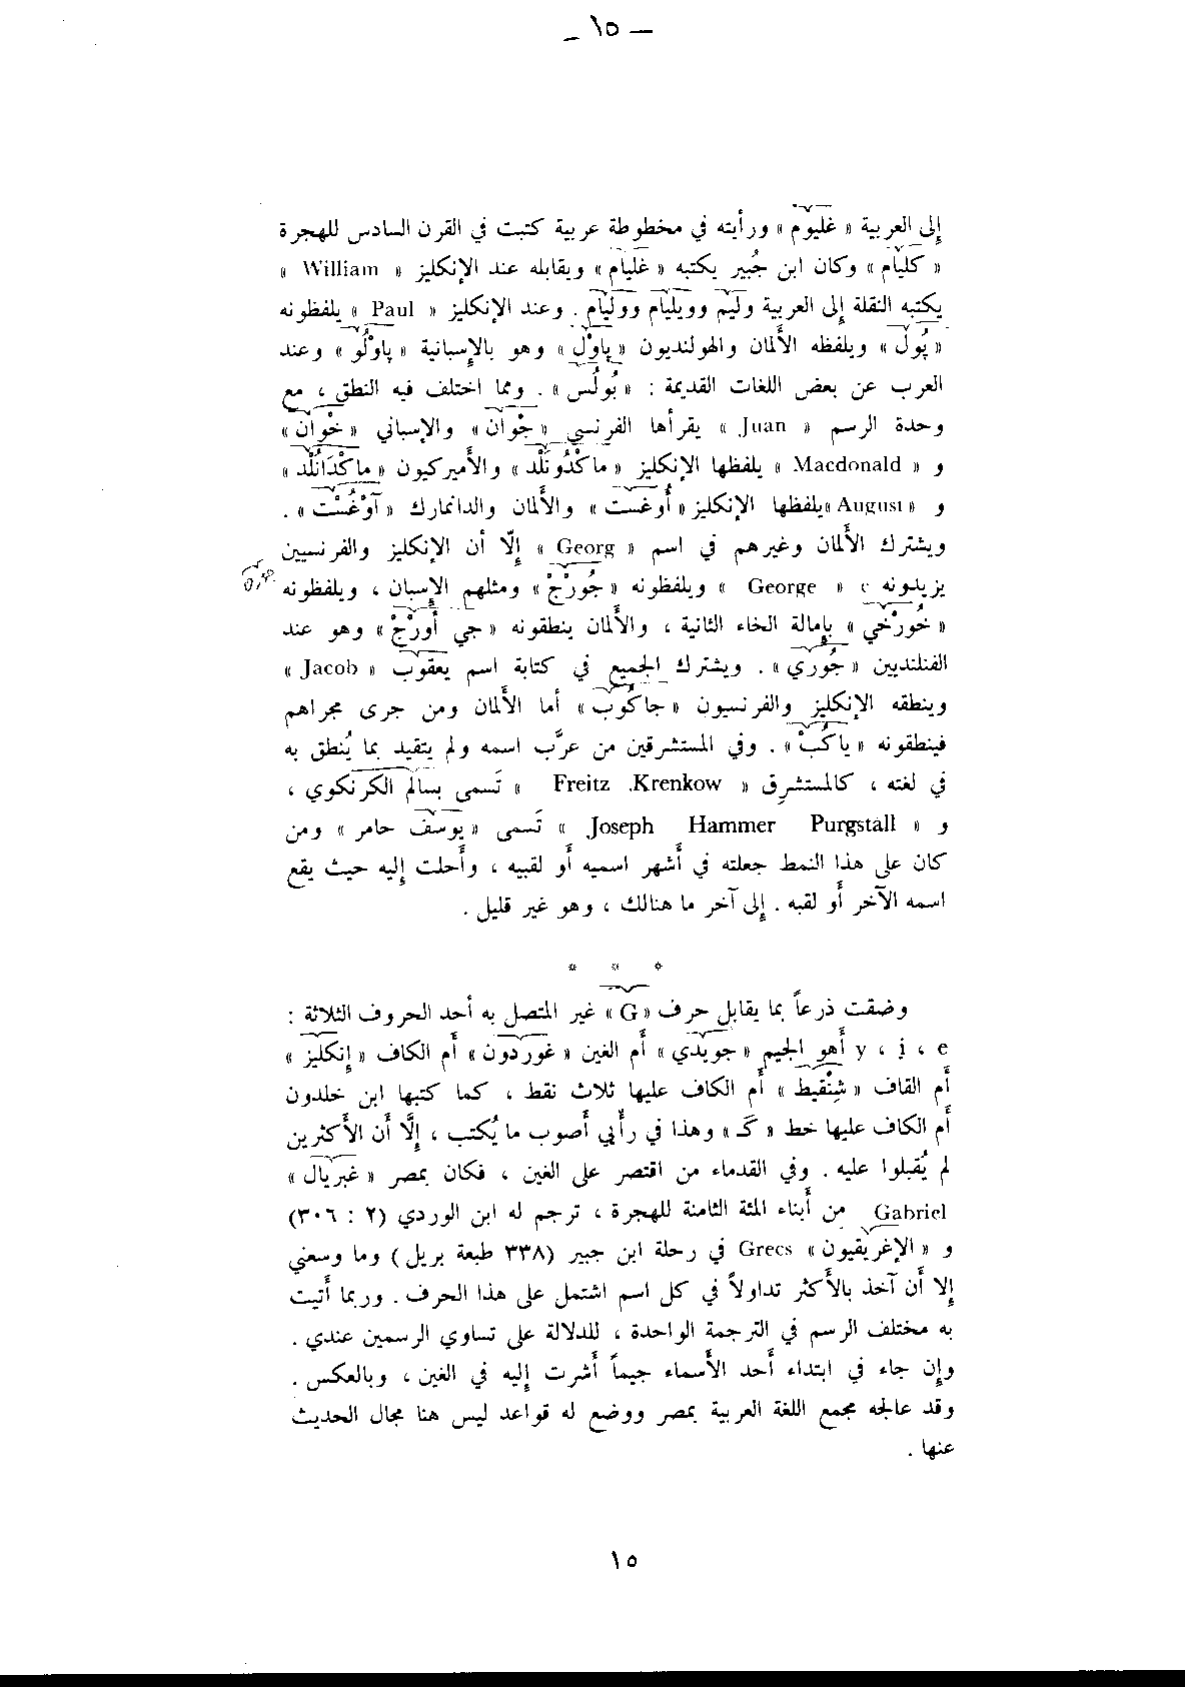 – ١٥ –
إلى العربية « غليوم » ورأيته في مخطوطة عربية كتبت في القرن السادس للهجرة
« كليام » وكان ابن جُبير يكتبه « غليام » ويقابله عند الإنكليز « William »
يكتبه النقلة إلى العربية وليم وويليام ووليام . وعند الإنكليز « Paul » يلفظونه
« پُول » ويلفظه الألمان والهولنديون « پاوْل » وهو بالإسبانية « پاوْلُو » وعند
العرب عن بعض اللغات القديمة : « بُولُس » . ومما اختلف فيه النطق ، مع
وحدة الرسم « Juan » يقرأها الفرنسي « جْوان » والإسباني « خْوان »
و « Macdonald » يلفظها الإنكليز « ماكْدُونَلْد » والأميركيون « ماكْدَانُلْد »
و « August » يلفظها الإنكليز « أُوغست » والألمان والدانمارك « آوْغُسْت » .
ويشترك الألمان وغيرهم في اسم « Georg » إلّا أن الإنكليز والفرنسيين
يزيدونه e « George » ويلفظونه « جُورْجْ » ومثلهم الإسبان ، ويلفظونه
« خُورْخي » بإمالة الخاء الثانية ، والألمان ينطقونه « جي أُورْجْ » وهو عند
الفنلنديين « جُوري » . ويشترك الجميع في كتابة اسم يعقوب « Jacob »
وينطقه الإنكليز والفرنسيون « جاكُوب » أما الألمان ومن جرى مجراهم
فينطقونه « ياكُبْ » . وفي المستشرقين من عرَّب اسمه ولم يتقيد بما يُنطق به
في لغته ، كالمستشرِق « Freitz .Krenkow » تَسمى بسالم الكرنكوي ،
و « Joseph Hammer Purgstall » تَسمى « يوسف حامر » ومن
كان على هذا النمط جعلته في أشهر اسميه أو لقبيه ، وأحلت إليه حيث يقع
اسمه الآخر أو لقبه . إلى آخر ما هنالك ، وهو غير قليل .
* * *
وضقت ذرعاً بما يقابل حرف « G » غير المتصل به أحد الحروف الثلاثة :
e ، i ، y أهو الجيم « جويدي » أم الغين « غوردون » أم الكاف « إنكليز »
أم القاف « شِنْقيط » أم الكاف عليها ثلاث نقط ، كما كتبها ابن خلدون
أم الكاف عليها خط « گ » وهذا في رأيي أصوب ما يُكتب ، إلَّا أن الأكثرين
لم يُقبلوا عليه . وفي القدماء من اقتصر على الغين ، فكان بمصر « غبريال »
Gabriel من أبناء المئة الثامنة للهجرة ، ترجم له ابن الوردي (٢ : ٣٠٦)
و « الإغريقيون » Grecs في رحلة ابن جبير (٣٣٨ طبعة بريل) وما وسعني
إلا أن آخذ بالأكثر تداولاً في كل اسم اشتمل على هذا الحرف . وربما أتيت
به مختلف الرسم في الترجمة الواحدة ، للدلالة على تساوي الرسمين عندي .
وإن جاء في ابتداء أحد الأسماء جيماً أشرت إليه في الغين ، وبالعكس .
وقد عالجه مجمع اللغة العربية بمصر ووضع له قواعد ليس هنا مجال الحديث
عنها .
١٥